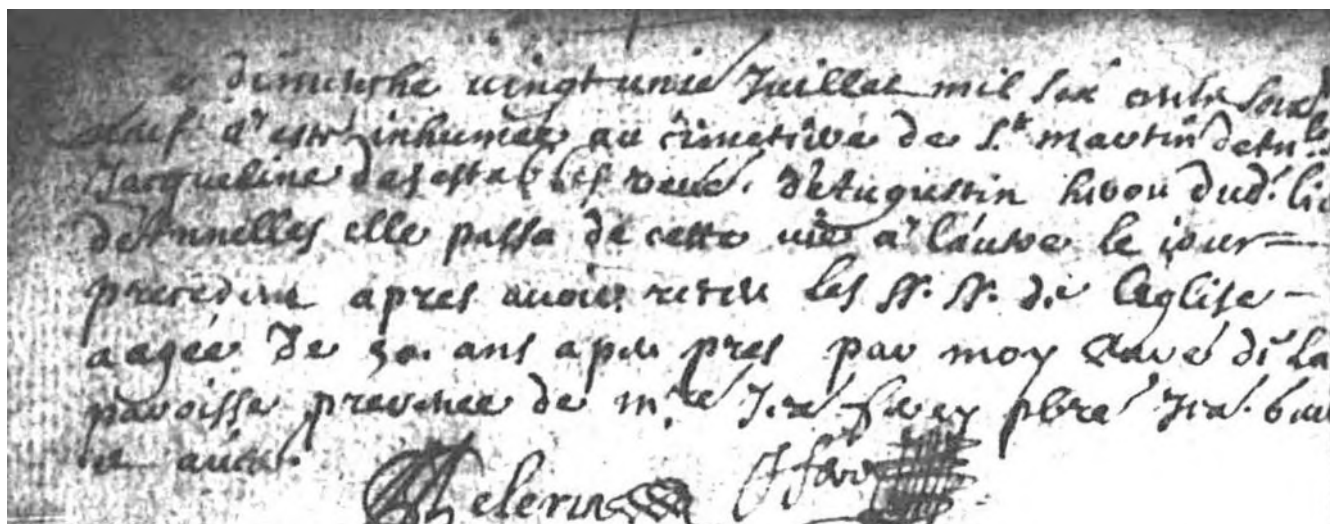 dimenshe uingt unié Juillet mil six cents soix
neuf a esté inhumée au cimetiere de S.t martin detn.
Jacqueline desestables veué. d'Augustin hivou dud. lie
detunelles elle passa de cette uie a lautre le jour
precedent apres auoir receu les SS. SS. de leglise
aagée de 50. ans a peu pres par moy Curé de la
paroisse presence de m.re pbré
et autres.
elerin